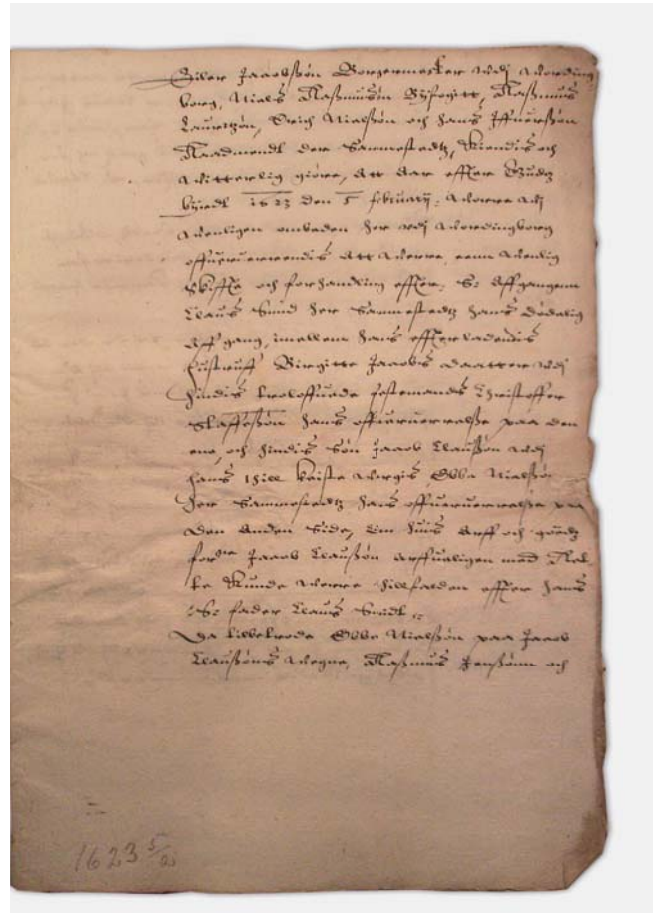 Jacobsøn Borgermester udj Wording
borg, Niels Rasmusøn Byfogitt, Rasmus
Lauritzøn, Erich Nielsøn och Hans Iffuersøn
Raadmendt der Sammestedtz, Kiendis och
Witterlig giøre, Att Aar effter Gudtz
byrdt 1623 den 5 february: Worre wij
Wenligen ombeden her wdj Wordingborg
offueruerrendis Att Werre, enn Wenlig
Skiffte och forhandling effter: S: Affgangenn
Claus Smid her Sammestedtz hans Dødelig
Aff gang, imellem hans effterladendis
hustruff Birgitte Jacobs daatter wdj
hindis troloffuede festemands Christoffer
Staffessøn hans offueruerrelsse paa den
ene, och hindis Søn Jacob Claussøn wdj
hans Ebbe Nielsøn
her Sammestedtz hans offueruerrelsse paa
Den Anden Side, Om huis Arff och goedtz
Jacob Claussøn arffueligen med Ret
te Kunde Werre tilfalden effter hans
S: fader Claus Smidt
Da Ebbe Nielsøn paa Jacob
Claussøns Wegne, Rasmus Jensønn och
1623 5/2